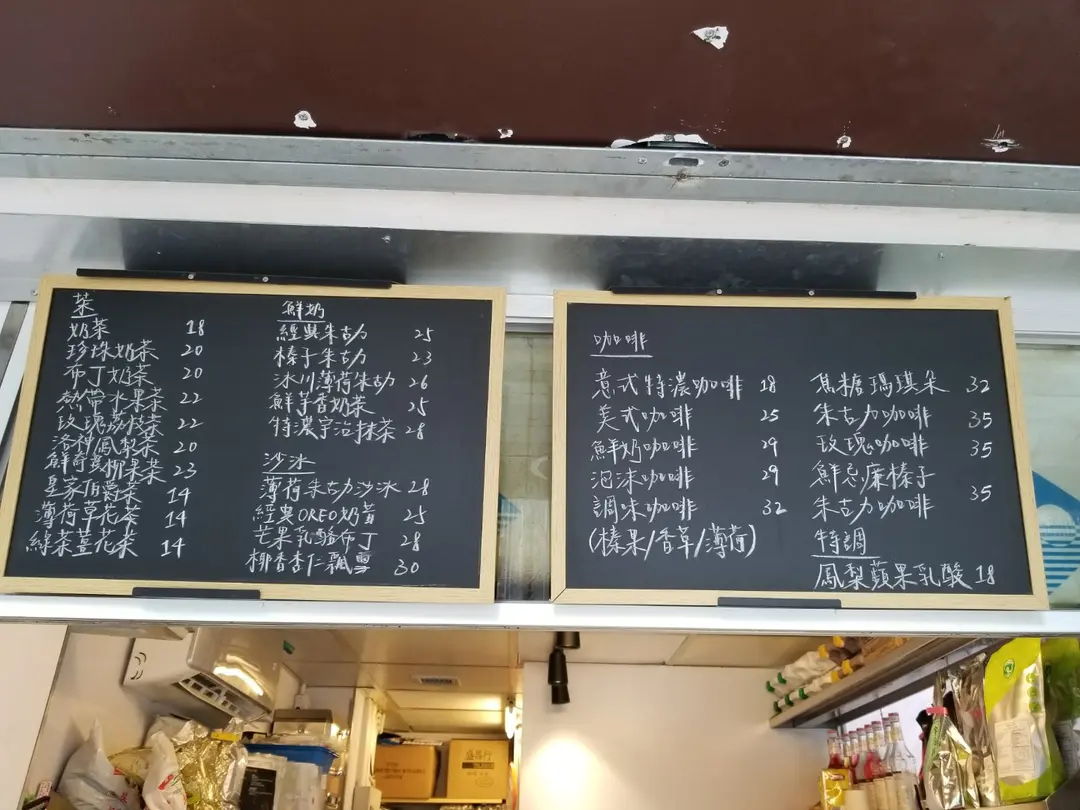 茶
奶茶 18
珍珠奶茶 20
布丁奶茶 20
熱帶水果茶 22
玫瑰荔枝茶 22
洛神鳳梨茶 20
鮮奇異椰果茶 23
皇家伯爵茶 14
薄荷草花茶 14
綠茶薑花茶 14
鮮奶
經典朱古力 25
榛子朱古力 23
冰川薄荷朱古力 26
鮮芋香奶茶 25
特濃宇治抹茶 28
沙冰
薄荷朱古力沙冰 28
經典OREO奶昔 25
芒果乳酪布丁 28
椰香杏仁飄雪 30
咖啡
意式特濃咖啡 18
美式咖啡 25
鮮奶咖啡 29
泡沫咖啡 29
調味咖啡 32
(榛果/香草/薄荷)
焦糖瑪琪朵 32
朱古力咖啡 35
玫瑰咖啡 35
鮮忌廉榛子
朱古力咖啡 35
特調
鳳梨蘋果乳酸 18